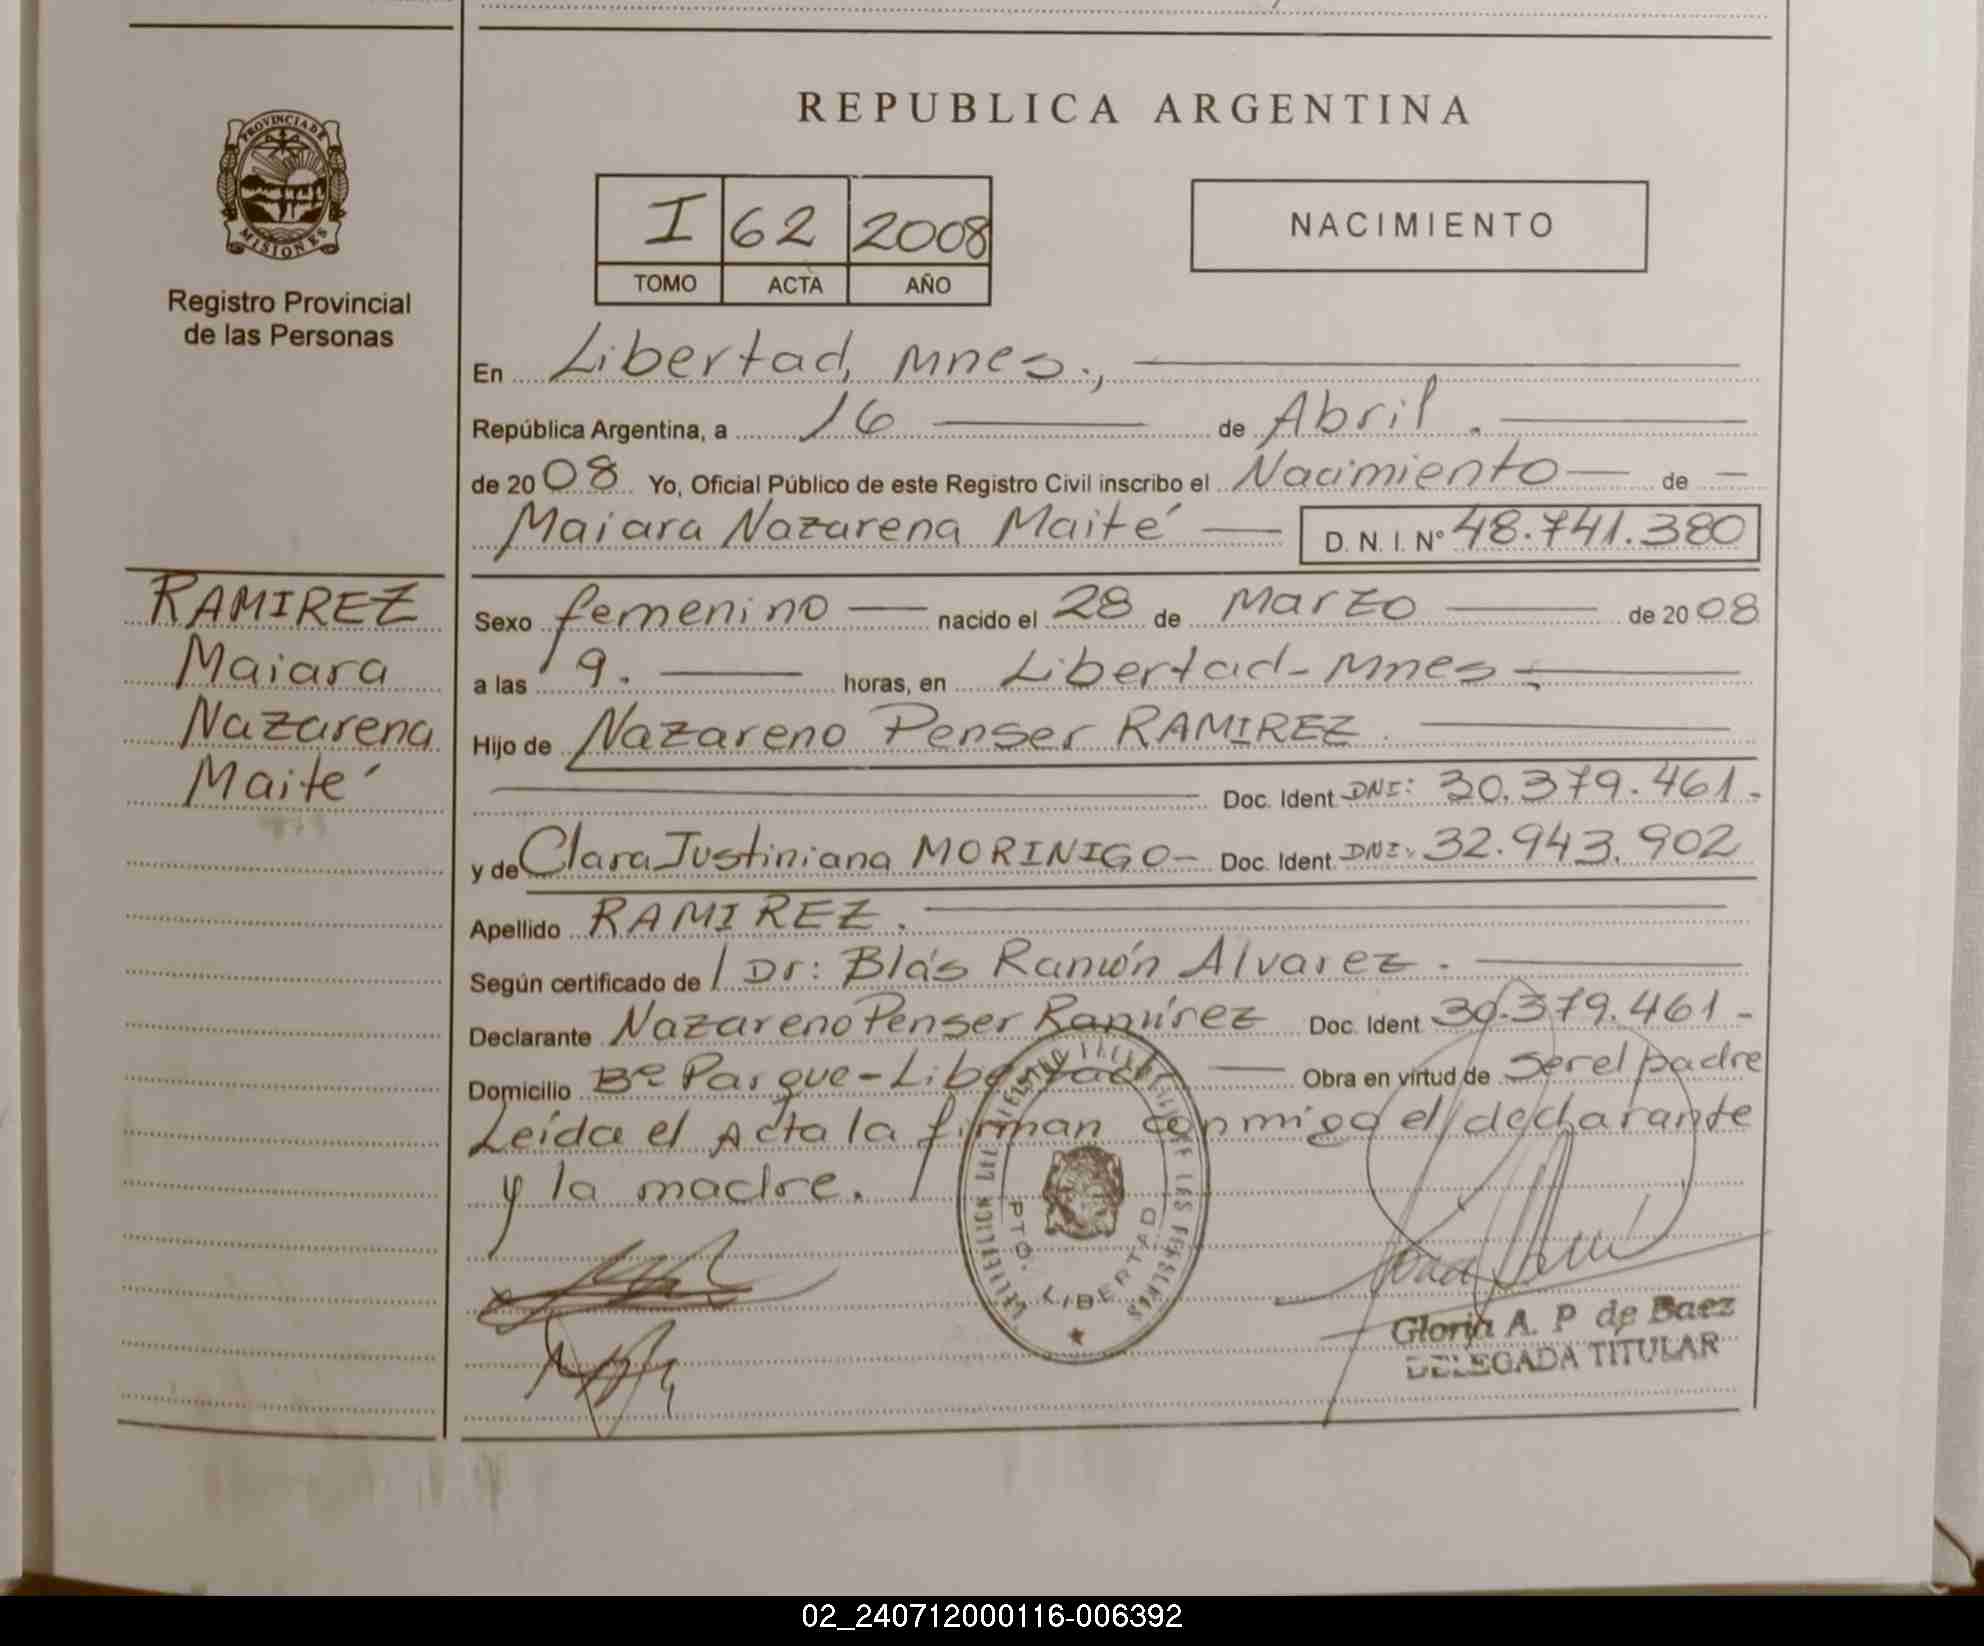 REPUBLICA ARGENTINA
PROVINCIA DE
MISIONES
Registro Provincial
de las Personas
I 62 2008
TOMO ACTA AÑO
NACIMIENTO
En Libertad, Mnes.,
República Argentina, a 16 de Abril.
de 2008 Yo, Oficial Público de este Registro Civil inscribo el Nacimiento de
Maiara Nazarena Maité D. N. I. Nº 48.741.380
RAMIREZ
Maiara
Nazarena
Maité
Sexo femenino nacido el 28 de Marzo de 2008
a las 9. horas, en Libertad-Mnes.
Hijo de Nazareno Penser RAMIREZ.
Doc. Ident. DNI: 30.379.461.-
y de Clara Justiniana MORINIGO- Doc. Ident. DNI: 32.943.902
Apellido RAMIREZ.
Según certificado de Dr: Blás Ramón Alvarez.
Declarante Nazareno Penser Ramírez Doc. Ident 30.379.461-
Domicilio Bº Parque-Libertad Obra en virtud de ser el padre
Leída el Acta la firman conmigo el declarante
y la madre.
DE LAS PERSONAS
PTO. LIBERTAD
Gloria A. P de Baez
DELEGADA TITULAR
02_240712000116-006392